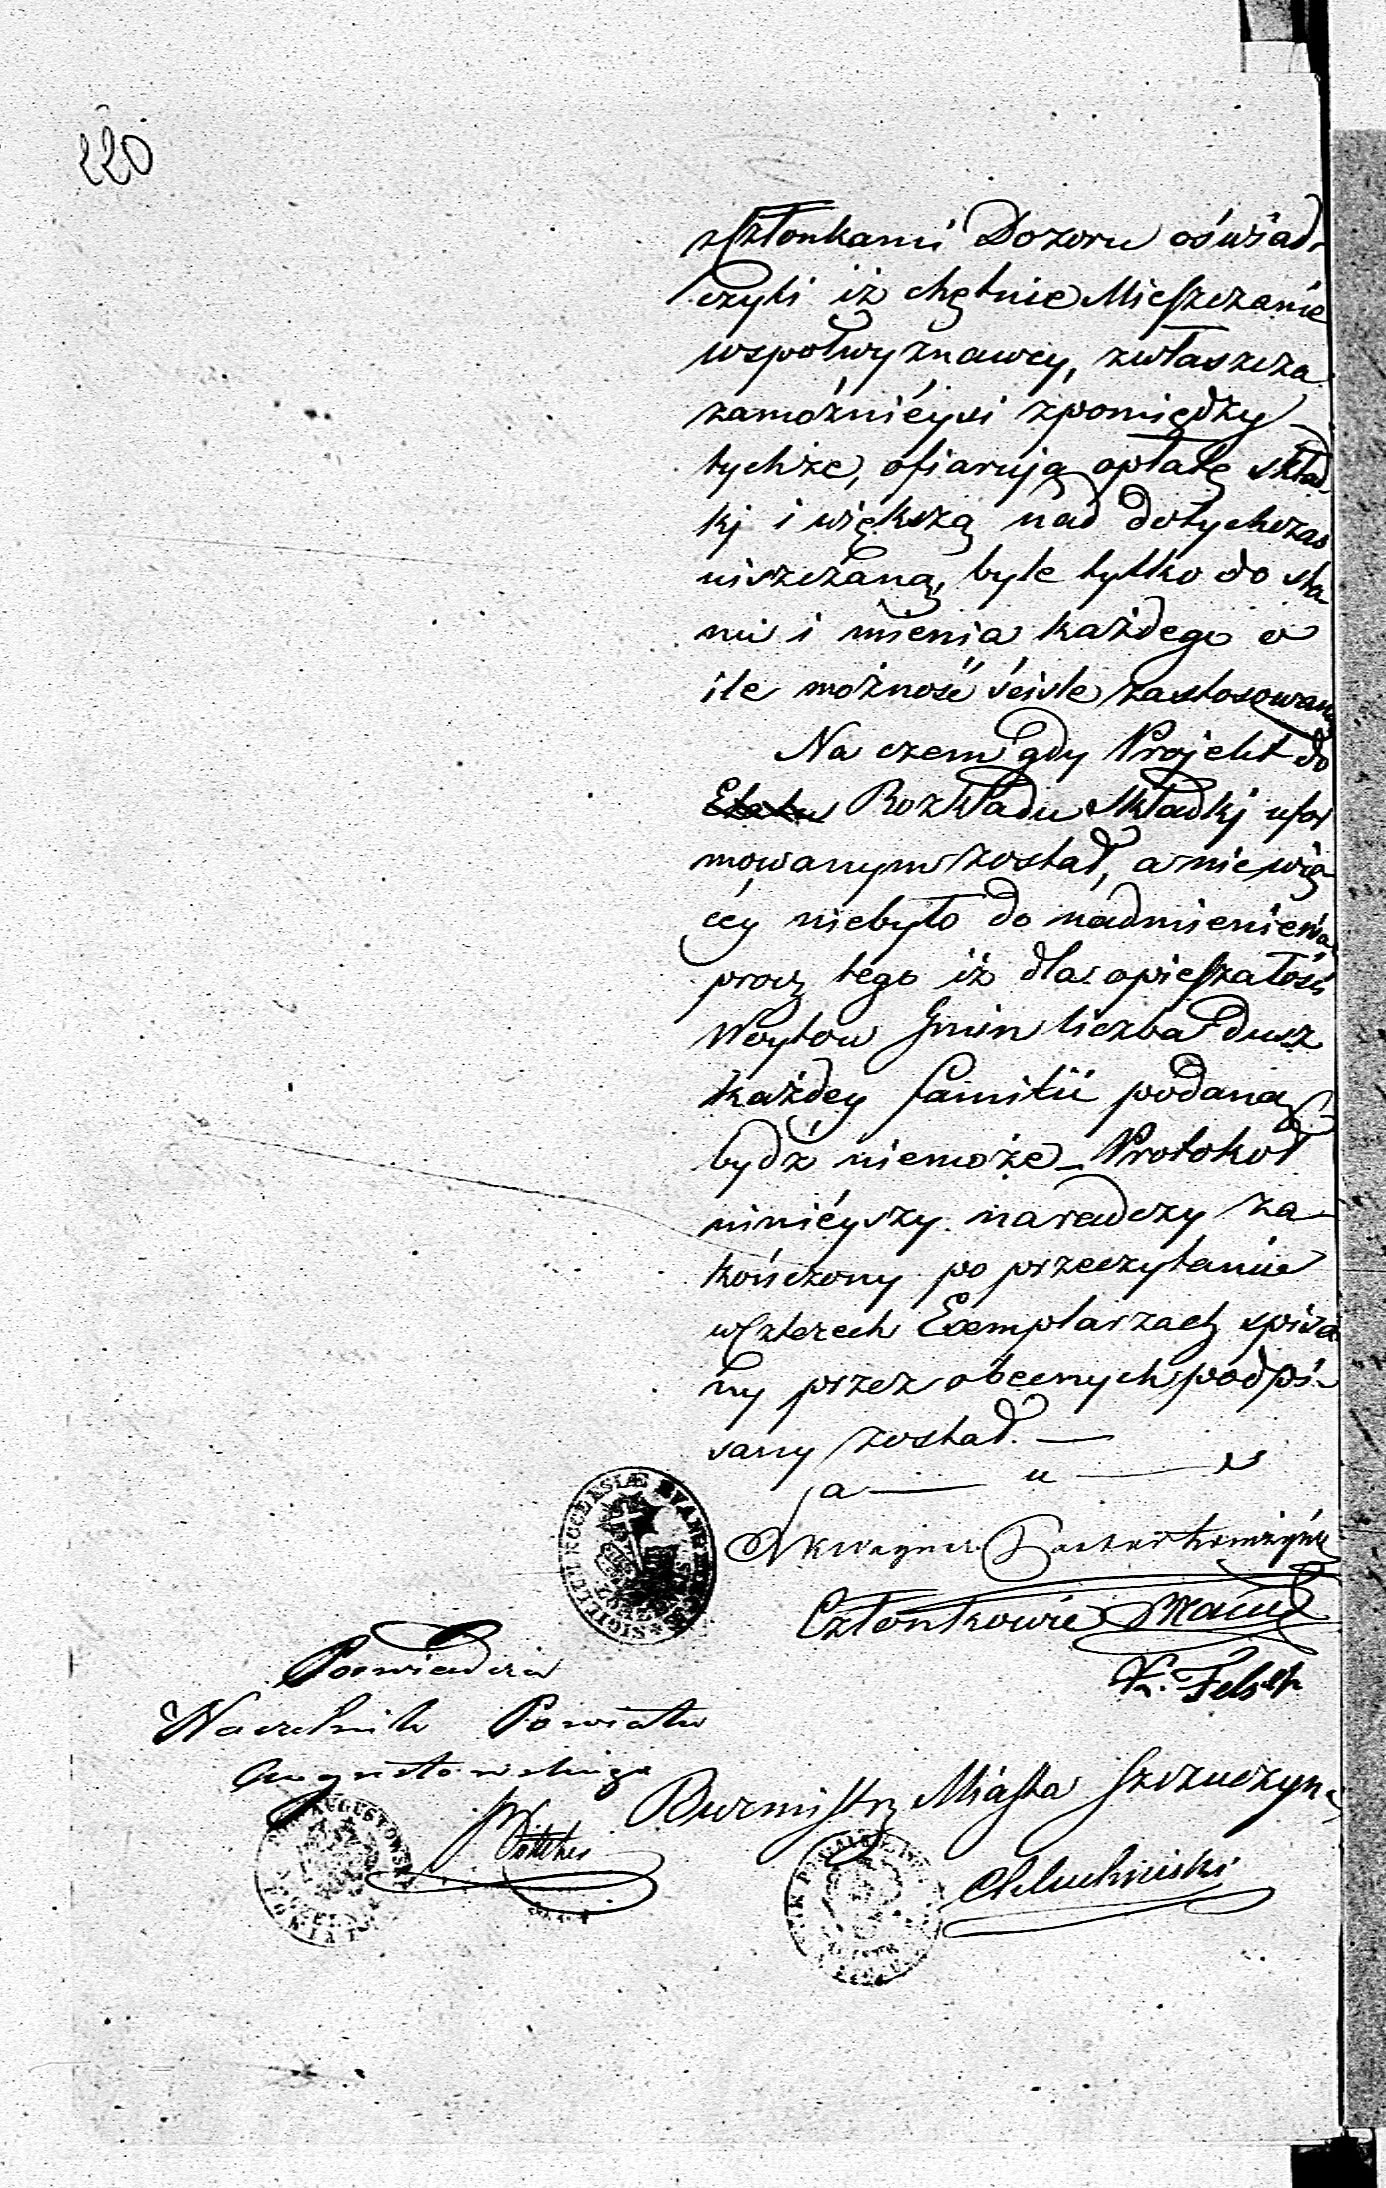 220
z Członkami Dozoru oświad-
czyli iż chętnie Mieszczanie
wspołwyznawcy, zwłaszcza
zamożniéysi zpomiędzy
tychże, ofiarują opłatę skład-
kj i większą nad dotychczas
uiszczaną, byle tylko do sta-
nu i mienia każdego o
ile możność ściśle zastosowaną
Na czem gdy Projekt do
Etatu Rozkładu Składkj ufor
mowanym został, a nic wię
cey niebyło do nadmienienia
procz tego iż dla opieszałości
Woytow Gmin liczba dusz
każdey familii podaną
bydź niemoże – Protokoł
niniéyszy naradczy za-
kończony po przeczytaniu
w Czterech Exemplarzach spisa
ny przez obecnych podpi-
sany został. —
a — u — s
Wagner Pastor Łomżyńsk
Członkowie
Poswiadcza
Naczelnik Powiatu
Augustowskiego
Burmistrz Miasta Szczuczyn